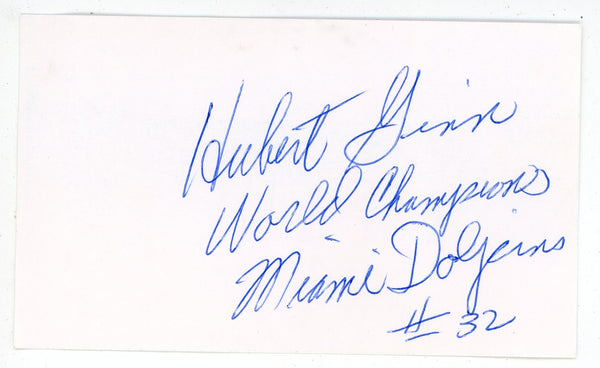 Hubert Ginn
World Champions
Miami Dolphins
# 32